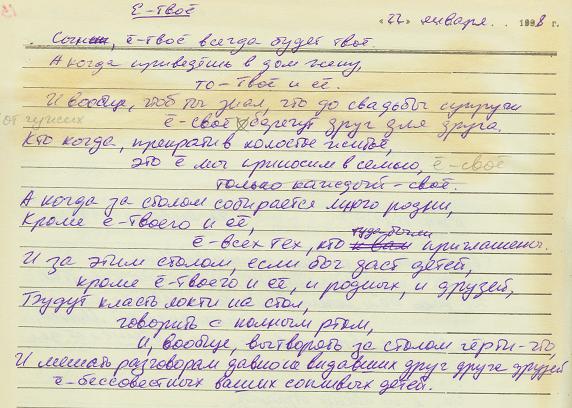 Ё-твоё
"22" января . . 1998 г.
Сынок, ё-твоё всегда будет твоё.
А когда приведёшь в дом жену,
то-твоё и её.
И вообще, чтоб ты знал, что до свадьбы супруги
от чужих
ё-своё берегут друг для друга.
Кто когда, прекратив холостое житьё,
это ё мы приносим в семью, ё-своё
только каждый-своё.
А когда за столом собирается много родни,
Кроме ё-твоего и её,
туда были
ё-всех тех, кто к вам приглашены.
И за этим столом, если бог даст детей,
кроме ё-твоего и её, и родных, и друзей,
Будут класть локти на стол,
говорить с полным ртом,
и, вообще, вытворять за столом чёрти-что,
И мешать разговорам давно не видавших друг друга друзей
ё-бессовестных ваших сопливых детей.